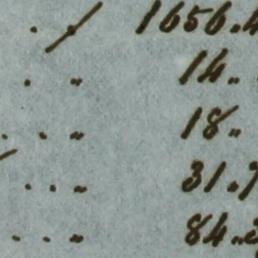 . ./. 1656.4
. „ 14„
. . „ 18„
. . „ 31.7
. . „ 84.3